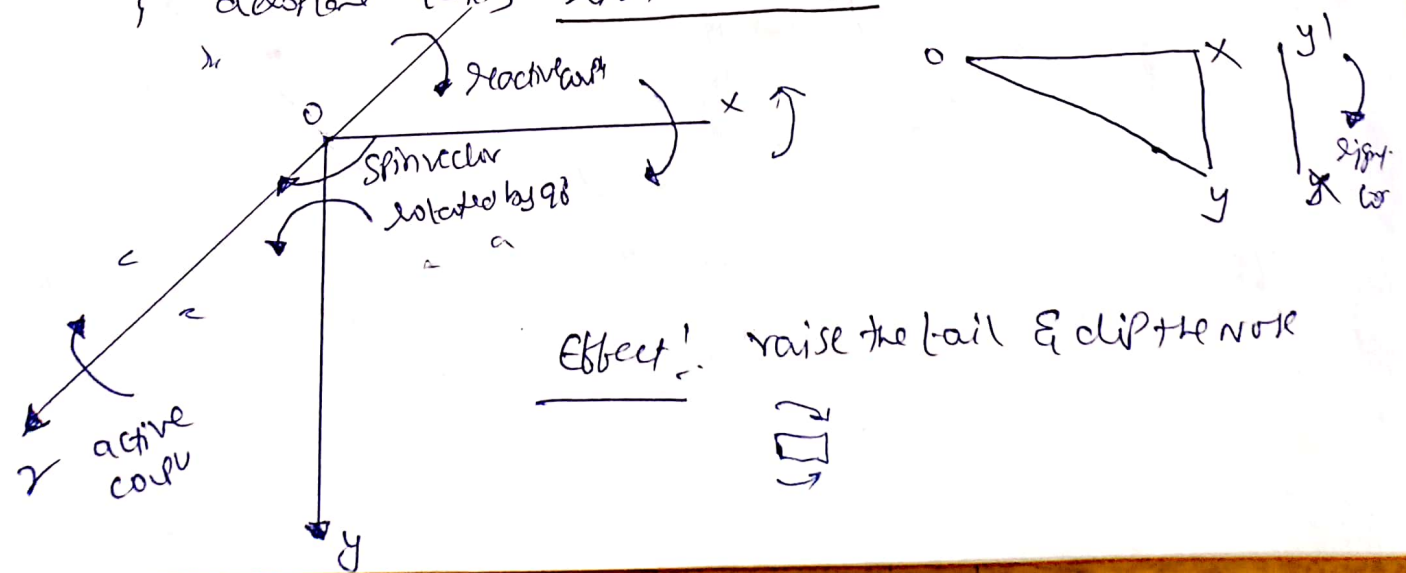 O
reactive coup
X
Spin vector
rotated by 90
active
coup
y
O
X
y'
y
Effect:- raise the tail & dip the Nose